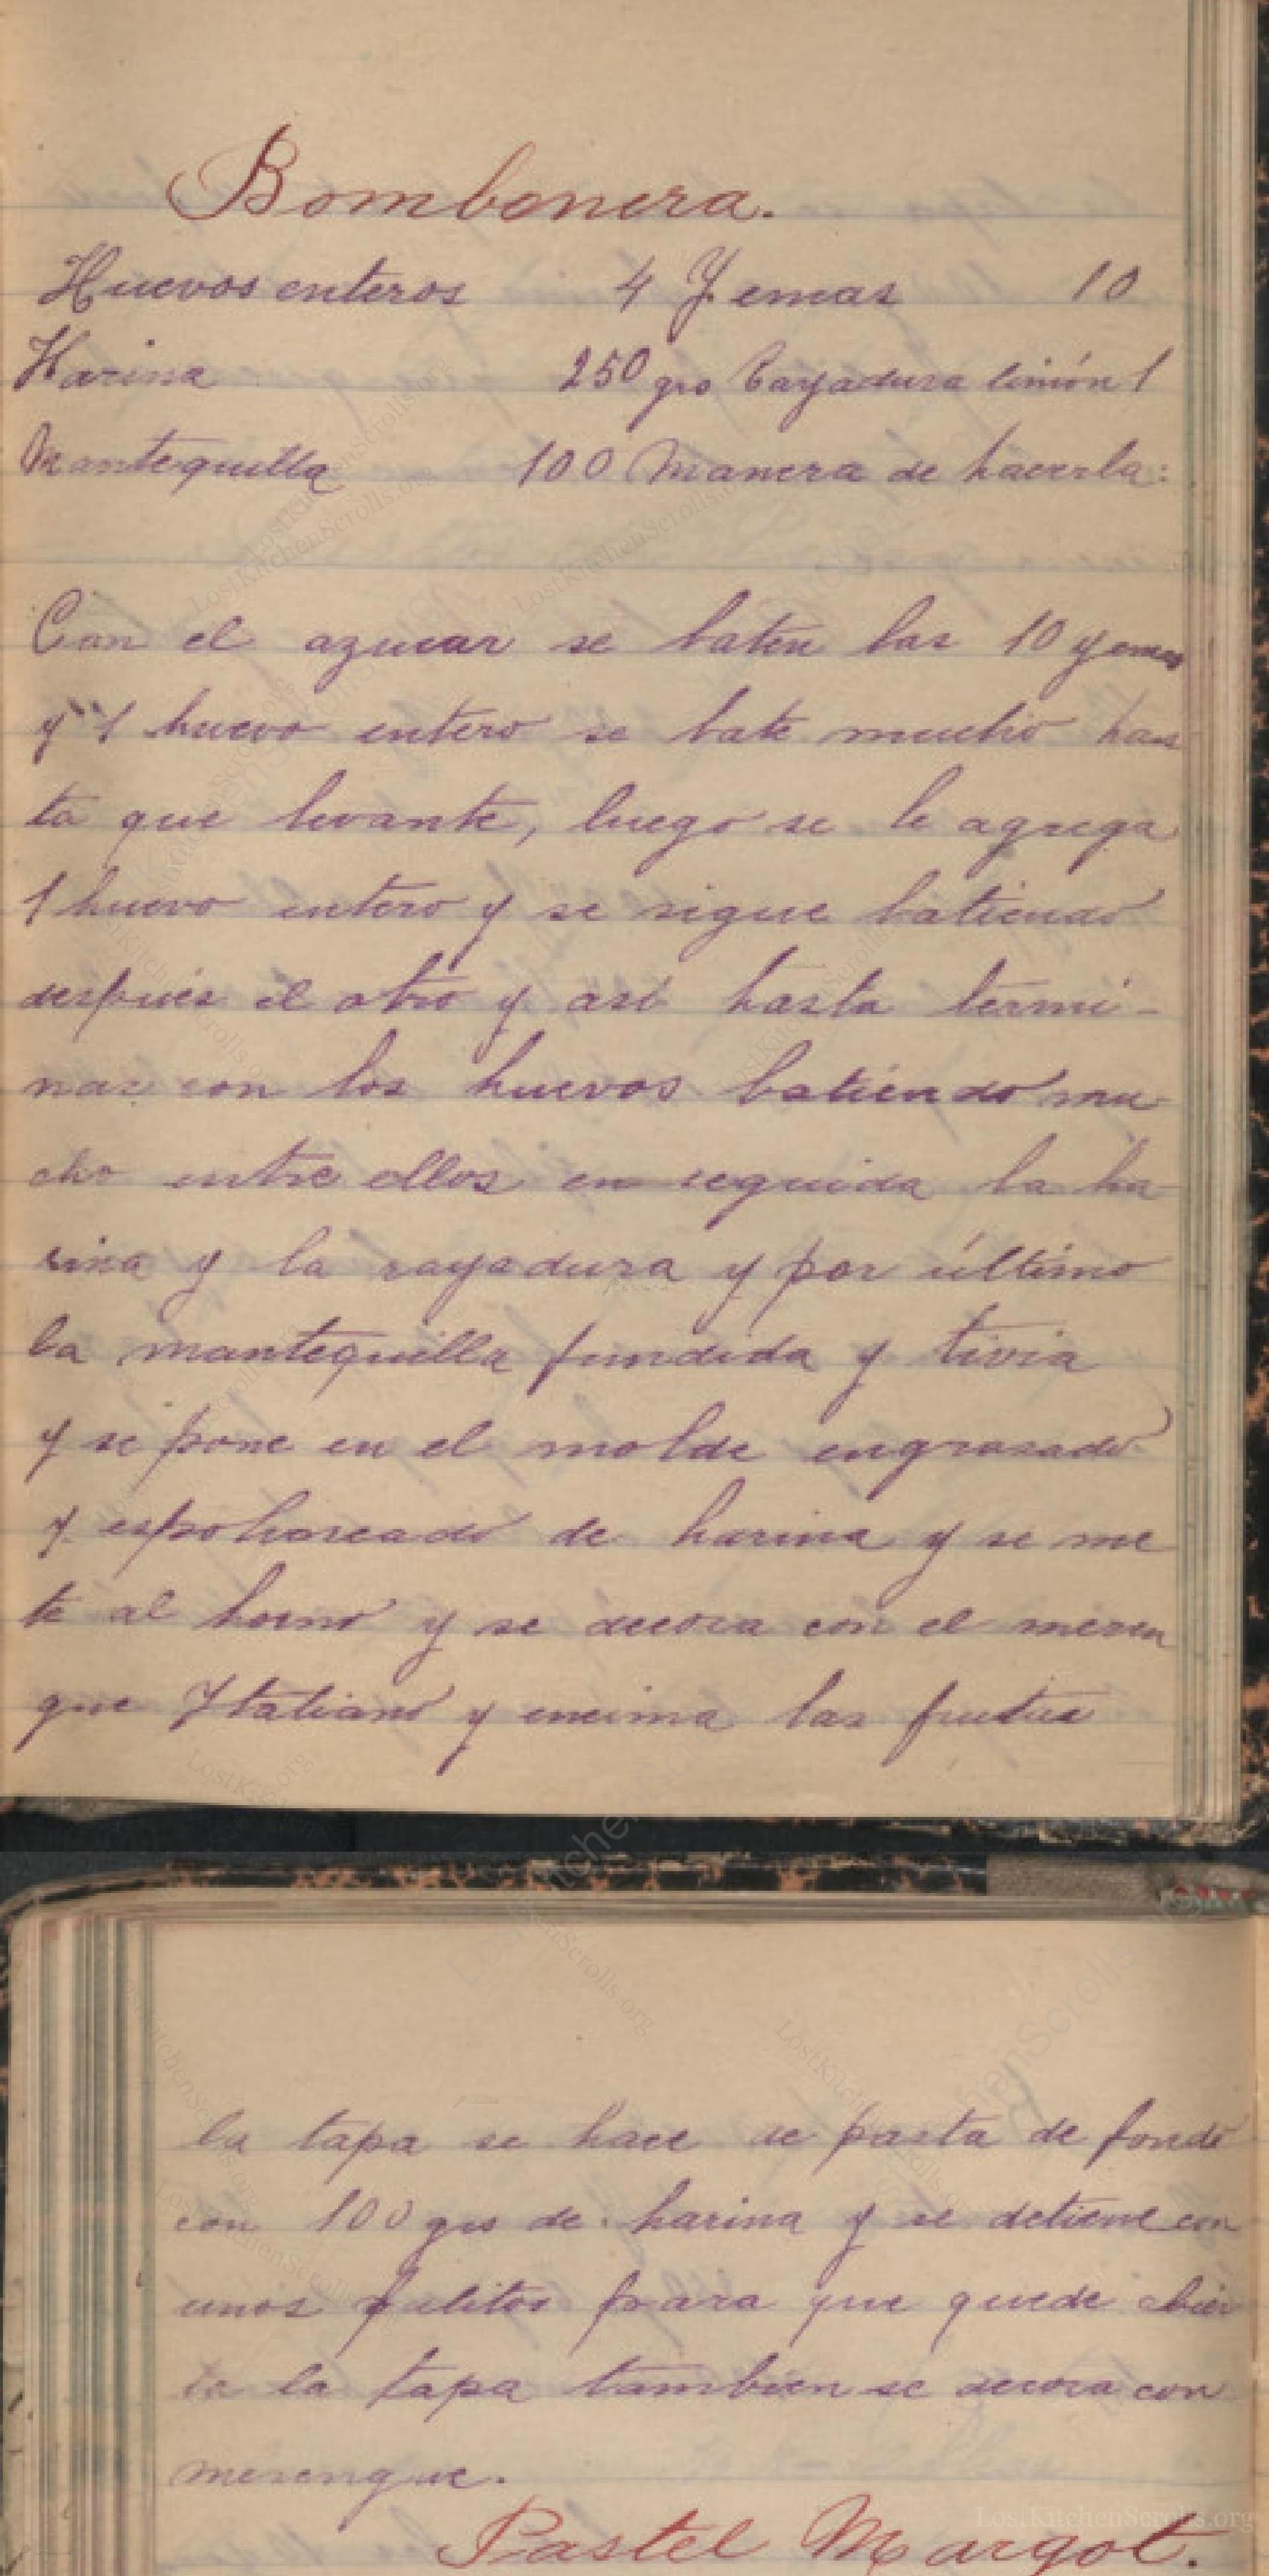 Bombonera.
Huevos enteros 4 Yemas 10
Harina 250 grs Rayadura limón 1
Mantequilla 100 Manera de hacerla:
Con el azucar se baten las 10 yemas
y 1 huevo entero se bate mucho has
ta que levante, luego se le agrega
1 huevo entero y se sigue batiendo
despues el otro y asi hasta termi-
nar con los huevos batiendo mu
cho entre ellos en seguida la ha
rina y la rayadura y por último
la mantequilla fundida y tivia
y se pone en el molde engrasado
y espolvoreado de harina y se me
te al horno y se decora con el meren
gue Italiano y encima las frutas
la tapa se hace de pasta de fondo
con 100 grs de harina y se detiene con
unos palitos para que quede abier
ta la tapa tambien se decora con
merengue.
Pastel Margot.
LostKitchenScrolls.org